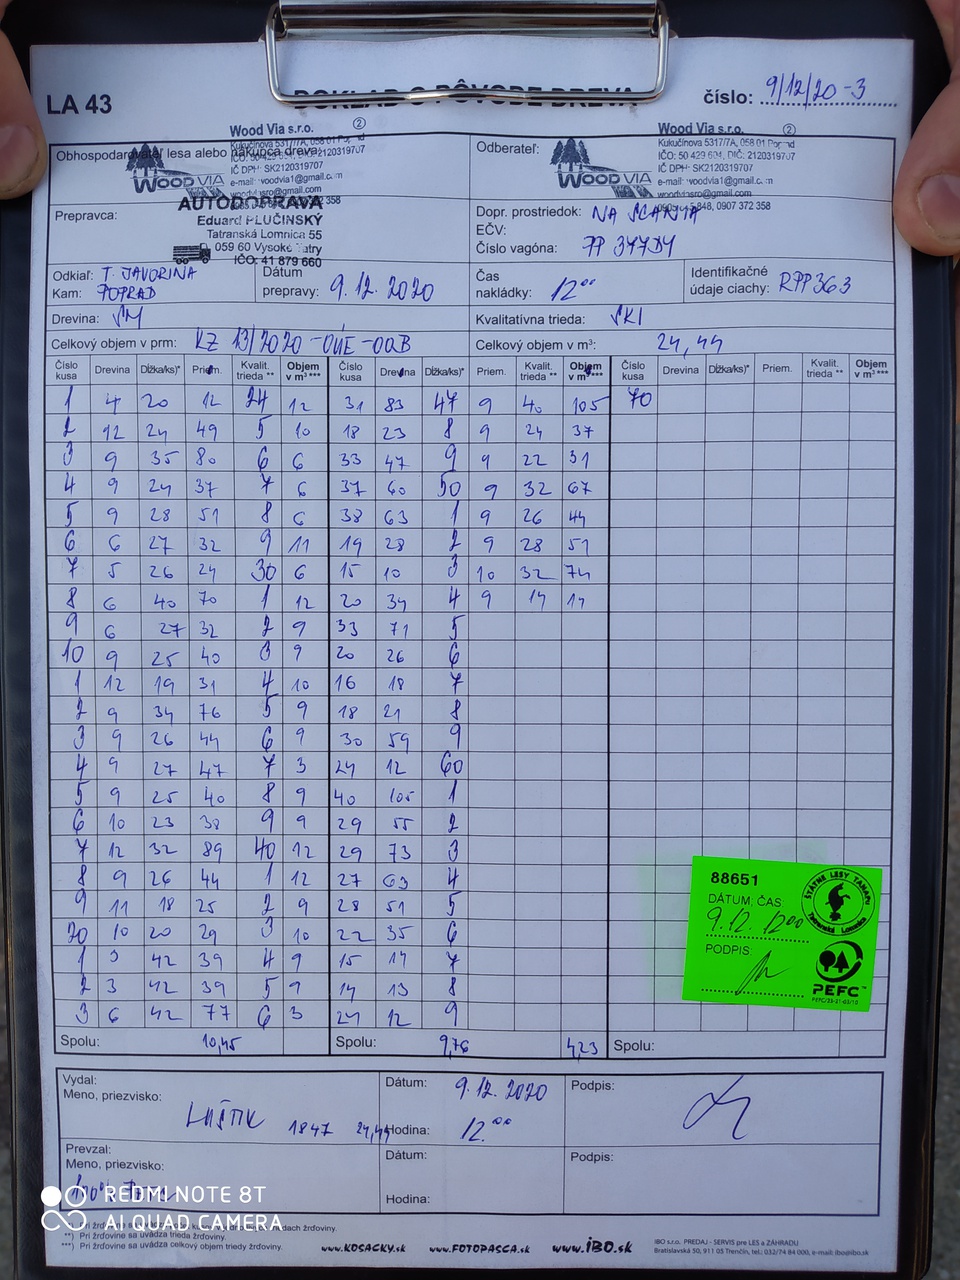 LA 43
DOKLAD O PÔVODE DREVA
číslo: 9/12/20-3
Obhospodarovateľ lesa alebo nákupca dreva:
Wood Via s.r.o. 2
Kukučínova 5317/7A, 058 01 Poprad
IČO: 50 429 604, DIČ: 2120319707
IČ DPH: SK2120319707
e-mail: woodvia1@gmail.com
woodviasro@gmail.com
WOOD VIA
Odberateľ:
Wood Via s.r.o. 2
Kukučínova 5317/7A, 058 01 Poprad
IČO: 50 429 604, DIČ: 2120319707
IČ DPH: SK2120319707
e-mail: woodvia1@gmail.com
woodviasro@gmail.com
0905 848, 0907 372 358
WOOD VIA
Prepravca:
AUTODOPRAVA
Eduard PLUČINSKÝ
Tatranská Lomnica 55
059 60 Vysoké Tatry
IČO: 41 879 660
Dopr. prostriedok: NA SCANIA
EČV:
Číslo vagóna: PP 377DY
Odkiaľ: T. JAVORINA
Kam: POPRAD
Dátum prepravy: 9.12.2020
Čas nakládky: 1200
Identifikačné údaje ciachy: RPP363
Drevina: SM
Kvalitatívna trieda: SKI
Celkový objem v prm: KZ 13/2020-OÚE-OOB
Celkový objem v m³: 24,44
Číslo kusa Drevina Dĺžka/ks)* Priem. Kvalit. trieda ** Objem v m³ *** Číslo kusa Drevina Dĺžka/ks)* Priem. Kvalit. trieda ** Objem v m³ *** Číslo kusa Drevina Dĺžka/ks)* Priem. Kvalit. trieda ** Objem v m³ ***
1 4 20 12 24 12 31 83 47 9 40 105 70
2 12 24 49 5 10 18 23 8 9 24 37
3 9 35 80 6 6 33 47 9 9 22 31
4 9 24 37 7 6 37 60 50 9 32 67
5 9 28 51 8 6 38 63 1 9 26 44
6 6 27 32 9 11 19 28 2 9 28 51
7 5 26 24 30 6 15 10 3 10 32 74
8 6 40 70 1 12 20 34 4 9 14 14
9 6 27 32 2 9 33 71 5
10 9 25 40 3 9 20 26 6
1 12 19 31 4 10 16 18 7
2 9 34 76 5 9 18 21 8
3 9 26 44 6 9 30 59 9
4 9 27 47 7 3 24 12 60
5 9 25 40 8 9 40 105 1
6 10 23 38 9 9 29 55 2
7 12 32 89 40 12 29 73 3
8 9 26 44 1 12 27 63 4
9 11 18 25 2 9 28 51 5
20 10 20 29 3 10 22 35 6
1 3 42 39 4 9 15 14 7
2 3 42 39 5 9 14 13 8
3 6 42 77 6 3 24 12 9
Spolu: 10,45 Spolu: 9,76 4,23 Spolu:
88651
DÁTUM, ČAS:
9.12. 1200
PODPIS:
ŠTÁTNE LESY TANAPu
Tatranská Lomnica
PEFC™
Vydal:
Meno, priezvisko: LAŠTIK 1847 24,44
Dátum: 9.12.2020
Hodina: 12.00
Podpis:
Prevzal:
Meno, priezvisko:
Dátum:
Hodina:
Podpis:
**) Pri žrďovine sa uvádza trieda žrďoviny.
***) Pri žrďovine sa uvádza celkový objem triedy žrďoviny.
www.KOSACKY.sk www.FOTOPASCA.sk www.iBO.sk
IBO s.r.o. PREDAJ - SERVIS pre LES a ZÁHRADU
Bratislavská 50, 911 05 Trenčín, tel.: 032/74 84 000, e-mail: ibo@ibo.sk
REDMI NOTE 8T
AI QUAD CAMERA